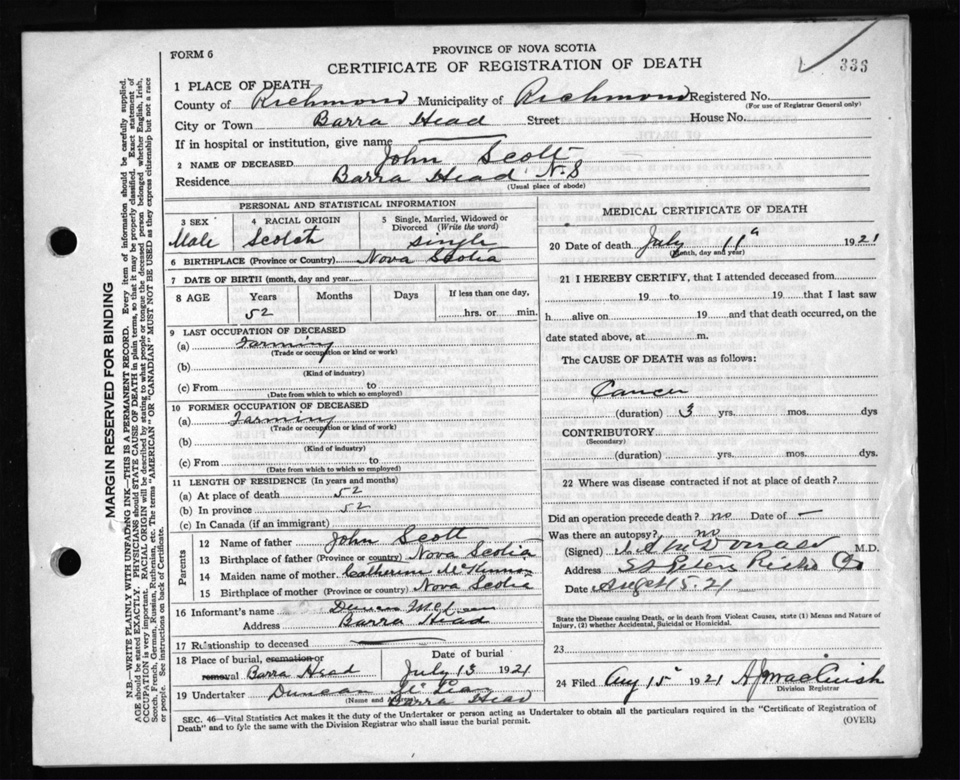 FORM 6
PROVINCE OF NOVA SCOTIA
CERTIFICATE OF REGISTRATION OF DEATH
336
1 PLACE OF DEATH
County of Richmond Municipality of Richmond Registered No.
(For use of Registrar General only)
City or Town Barra Head Street House No.
If in hospital or institution, give name
2 NAME OF DECEASED John Scott
Residence Barra Head N.S
(Usual place of abode)
PERSONAL AND STATISTICAL INFORMATION
3 SEX
Male
4 RACIAL ORIGIN
Scotch
5 Single, Married, Widowed or Divorced (Write the word)
single
6 BIRTHPLACE (Province or Country) Nova Scotia
7 DATE OF BIRTH (month, day and year)
8 AGE Years Months Days If less than one day,
52 hrs. or min.
9 LAST OCCUPATION OF DECEASED
(a) Farming
(Trade or occupation or kind of work)
(b)
(Kind of industry)
(c) From to
(Date from which to which so employed)
10 FORMER OCCUPATION OF DECEASED
(a) Farming
(Trade or occupation or kind of work)
(b)
(Kind of industry)
(c) From to
(Date from which to which so employed)
11 LENGTH OF RESIDENCE (In years and months)
(a) At place of death 52
(b) In province 52
(c) In Canada (if an immigrant)
Parents
12 Name of father John Scott
13 Birthplace of father (Province or country) Nova Scotia
14 Maiden name of mother Catherine McKinnon
15 Birthplace of mother (Province or country) Nova Scotia
16 Informant's name Duncan McLean
Address Barra Head
17 Relationship to deceased
18 Place of burial, cremation or removal Barra Head
Date of burial
July 13 1921
19 Undertaker Duncan McLean
(Name and address)
Barra Head
MEDICAL CERTIFICATE OF DEATH
20 Date of death July 11 1921
(Month, day and year)
21 I HEREBY CERTIFY, that I attended deceased from
19 to 19 that I last saw
h alive on 19 and that death occurred, on the
date stated above, at m.
The CAUSE OF DEATH was as follows:
Cancer
(duration) 3 yrs. mos. dys
CONTRIBUTORY
(Secondary)
(duration) yrs. mos. dys.
22 Where was disease contracted if not at place of death?
Did an operation precede death? no Date of —
Was there an autopsy? no
(Signed) M.D.
Address St Peters Richd Co
Date 15.21
State the Disease causing Death, or in death from Violent Causes, state: (1) Means and Nature of
Injury, (2) whether Accidental, Suicidal or Homicidal.
23
24 Filed Aug 15 1921
Division Registrar
SEC. 46—Vital Statistics Act makes it the duty of the Undertaker or person acting as Undertaker to obtain all the particulars required in the "Certificate of Registration of
Death" and to fyle the same with the Division Registrar who shall issue the burial permit.
(OVER)
MARGIN RESERVED FOR BINDING
N.B.—WRITE PLAINLY WITH UNFADING INK—THIS IS A PERMANENT RECORD. Every item of information should be carefully supplied.
AGE should be stated EXACTLY. PHYSICIANS should STATE CAUSE OF DEATH in plain terms, so that it may be properly classified. Exact statement of
OCCUPATION is very important. RACIAL ORIGIN will be described by stating to what people or tongue the deceased person belonged whether English, Irish,
Scotch, French, German, Russian, Ruthenian, etc. The terms "AMERICAN" OR "CANADIAN" MUST NOT BE USED as they express citizenship but not a race
or people. See instructions on back of Certificate.